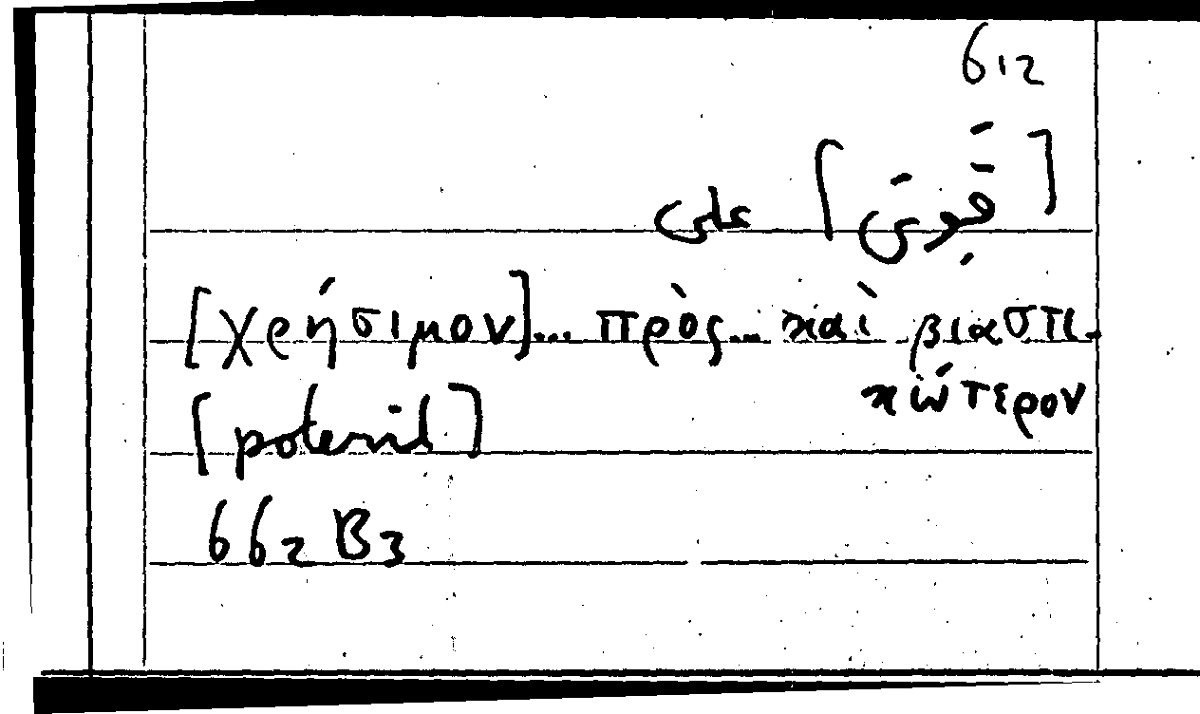 612
[قوتى] على
[χρήσιμον]... πρὸς... καὶ βιαστι-
κώτερον
[potenid]
662 B3